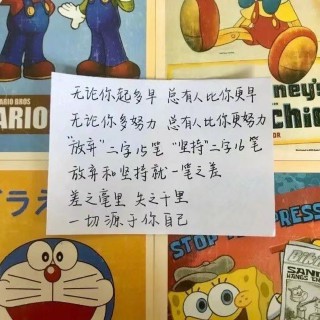 ARIO BROS
ARIO
ney's
chin
无论你起多早 总有人比你更早
无论你多努力 总有人比你更努力
"放弃"二字15笔 "坚持"二字16笔
放弃和坚持就一笔之差
差之毫里 失之千里
一切源于你自己
ドラえ
STOP THE PRESS
SAND